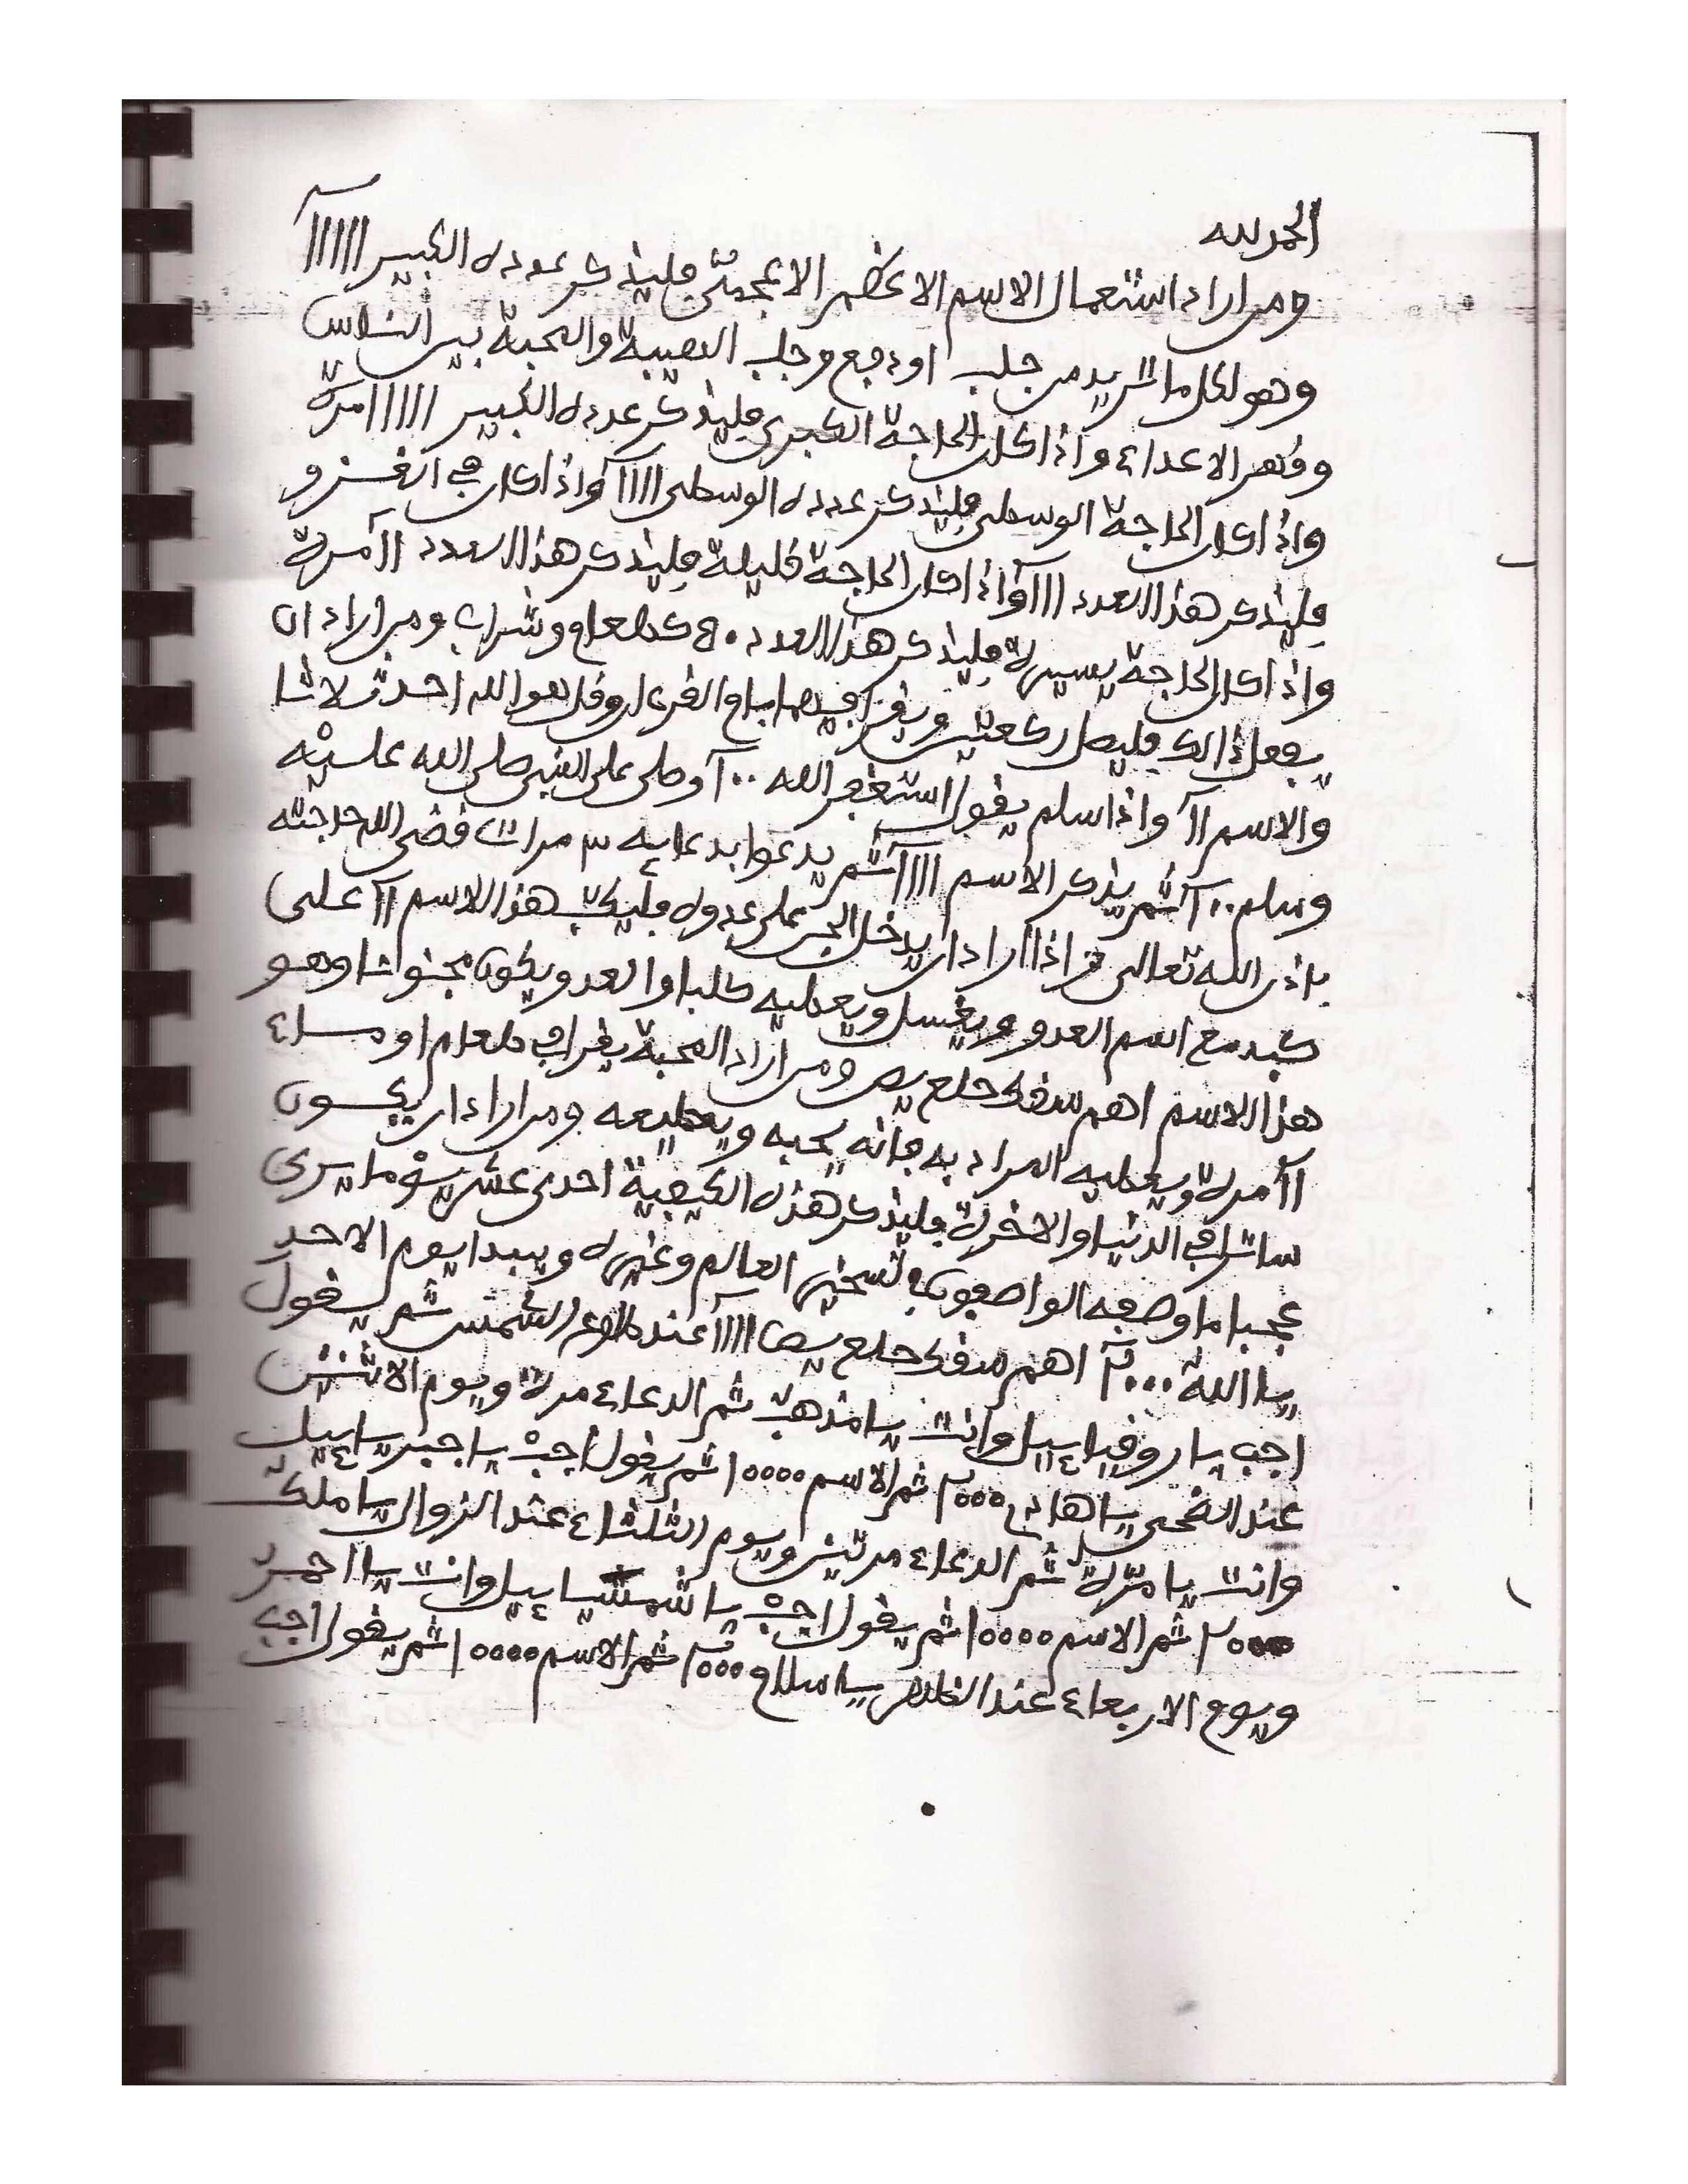 الحمد لله
ومن اراد استعمال الاسم الاعظم الاعجمى فليذكر عدده الكبير ١١١١١١
وهو لكل ما تريد من جلب او دفع وجلب الهيبة والمحبة بين الناس
وقهر الاعداء واذا كان الحاجة الكبرى فليذكر عدده الكبير ١١١١١ مرة
واذا كان الحاجة الوسطى فليذكر عدده الوسطى ١١١١ واذا كان في الغزو
فليذكر هذا العدد ١١١ واذا كان الحاجة قليلة فليذكر هذا العدد ١١ مرة
واذا كان الحاجة يسيرة فليذكر هذا العدد طعام وشراب ومن اراد ان
يفعل ذالك فليصل ركعتين ويقرا فيهما بام القرءان وقل هو الله احد ثلاثا
والاسم ١١ واذا سلم يقول استغفر الله ١٠٠ وصلى على النبي صلى الله عليه
وسلم ١٠٠ ثم يذكر الاسم ١١١١ ثم يدعوا بدعايه ٣ مرات قضى الله حاجته
باذن الله تعالى واذا اراد ان يدخل الجن على عدوه فليكتب هذا الاسم ١١ على
كبد مع اسم العدو ويغسل ويعطيه كلبا والعدو يكون مجنونا وهو
هذا الاسم اهم سقك حلع يص ومن اراد المحبة يقرا في طعام او ماء
١١ مرة ويعطيه المراد به فانه يحبه ويطيعه ومن اراد ان يكون
في الدنيا والاخرة فليذكر هذه الكيفية احدى عشر يوما يرى
عجبا ما وصفه الواصفون في تسخير العالم وغيره ويبدا يوم الاحد
يا الله ٢٠٠٠ اهم سقك حلع يص ١١١١ عند طلوع الشمس ثم يقول
اجب يا روقيائيل وانت يا مذهب ثم الدعاء مرة ويوم الاثنين
عند الضحى يا هادي ٢٠٠٠ ثم الاسم ١٠٠٠٠ ثم يقول اجب يا جبريائيل
وانت يا مرة ثم الدعاء مرتين ويوم الثلثاء عند الزوال يا ملك
٢٠٠٠ ثم الاسم ١٠٠٠٠ ثم يقول اجب يا شمسيائيل وانت يا احمر
ويوم الاربعاء عند الظهر يا سلام ٢٠٠٠ ثم الاسم ١٠٠٠٠ ثم يقول اجب